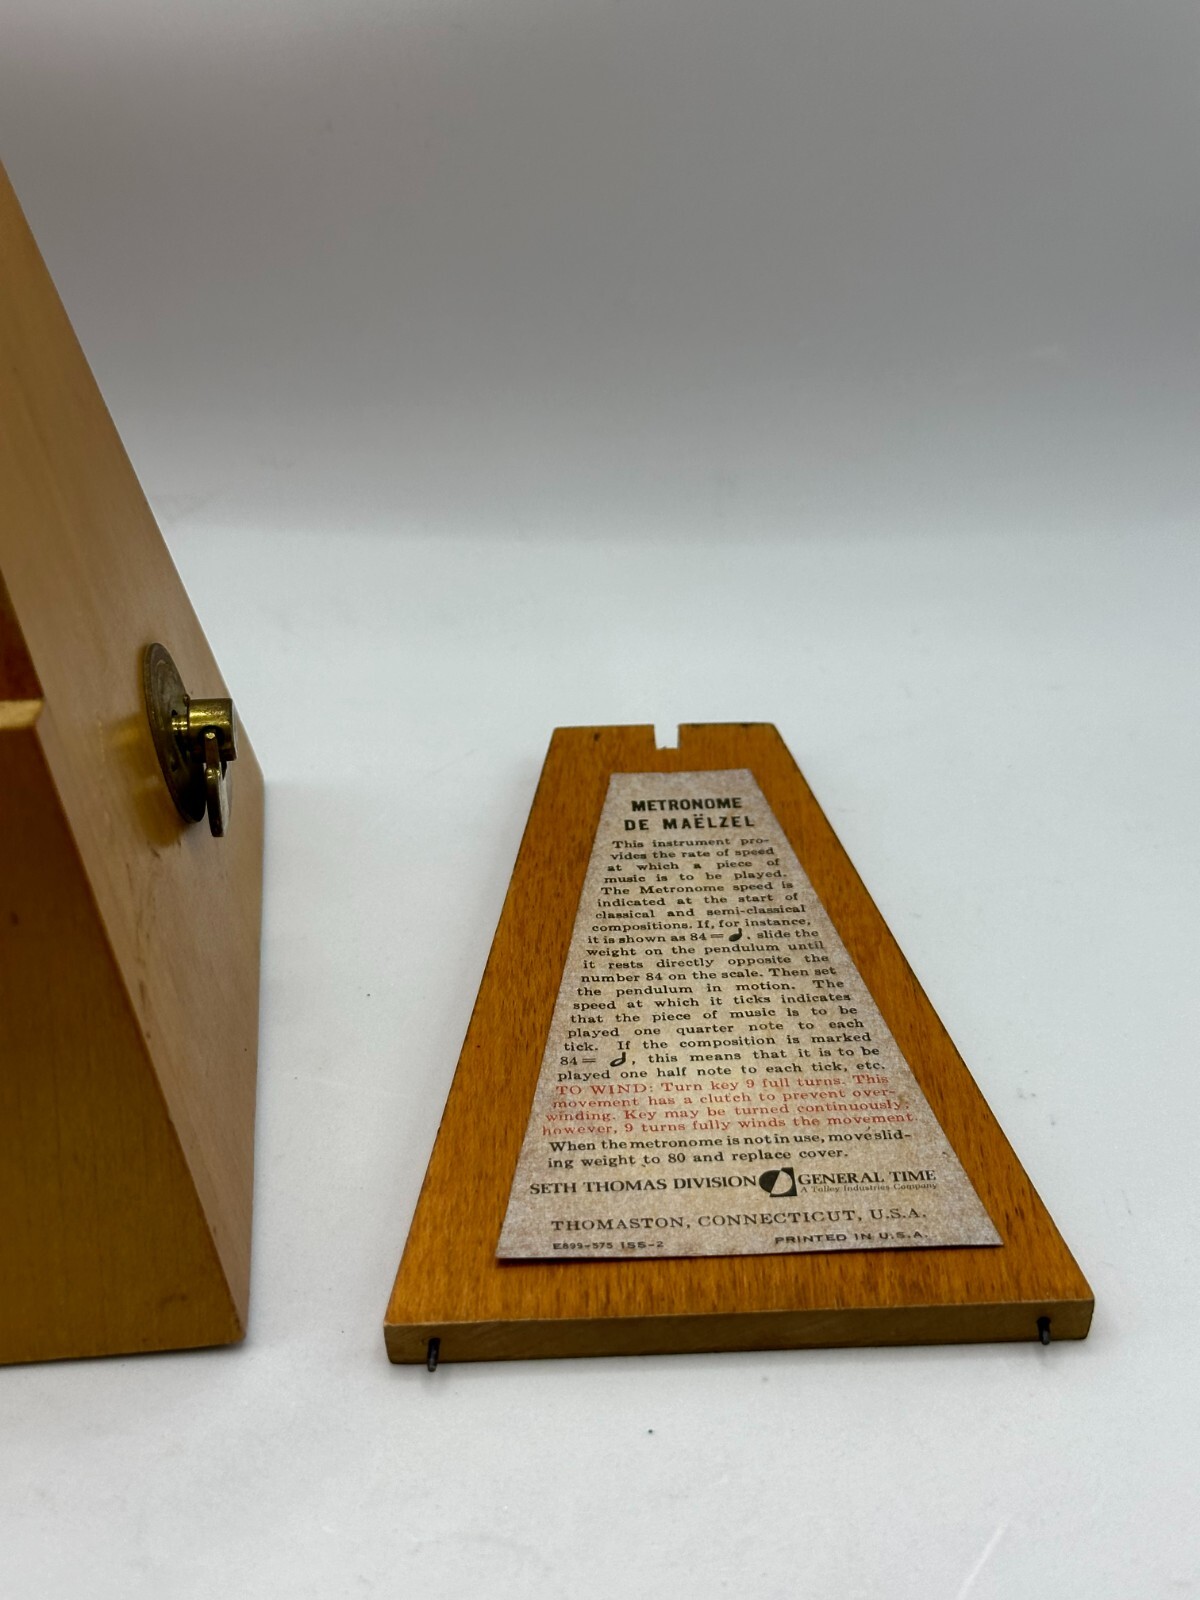 METRONOME
DE MAËLZEL
This instrument pro-
vides the rate of speed
at which a piece of
music is to be played.
The Metronome speed is
indicated at the start of
classical and semi-classical
compositions. If, for instance,
it is shown as 84 = ♩, slide the
weight on the pendulum until
it rests directly opposite the
number 84 on the scale. Then set
the pendulum in motion. The
speed at which it ticks indicates
that the piece of music is to be
played one quarter note to each
tick. If the composition is marked
84 = 𝅗𝅥, this means that it is to be
played one half note to each tick, etc.
TO WIND: Turn key 9 full turns. This
movement has a clutch to prevent over-
winding. Key may be turned continuously;
however, 9 turns fully winds the movement
When the metronome is not in use, move slid-
ing weight to 80 and replace cover.
SETH THOMAS DIVISION GENERAL TIME
A Talley Industries Company
THOMASTON, CONNECTICUT, U.S.A.
E899-575 ISS-2 PRINTED IN U.S.A.